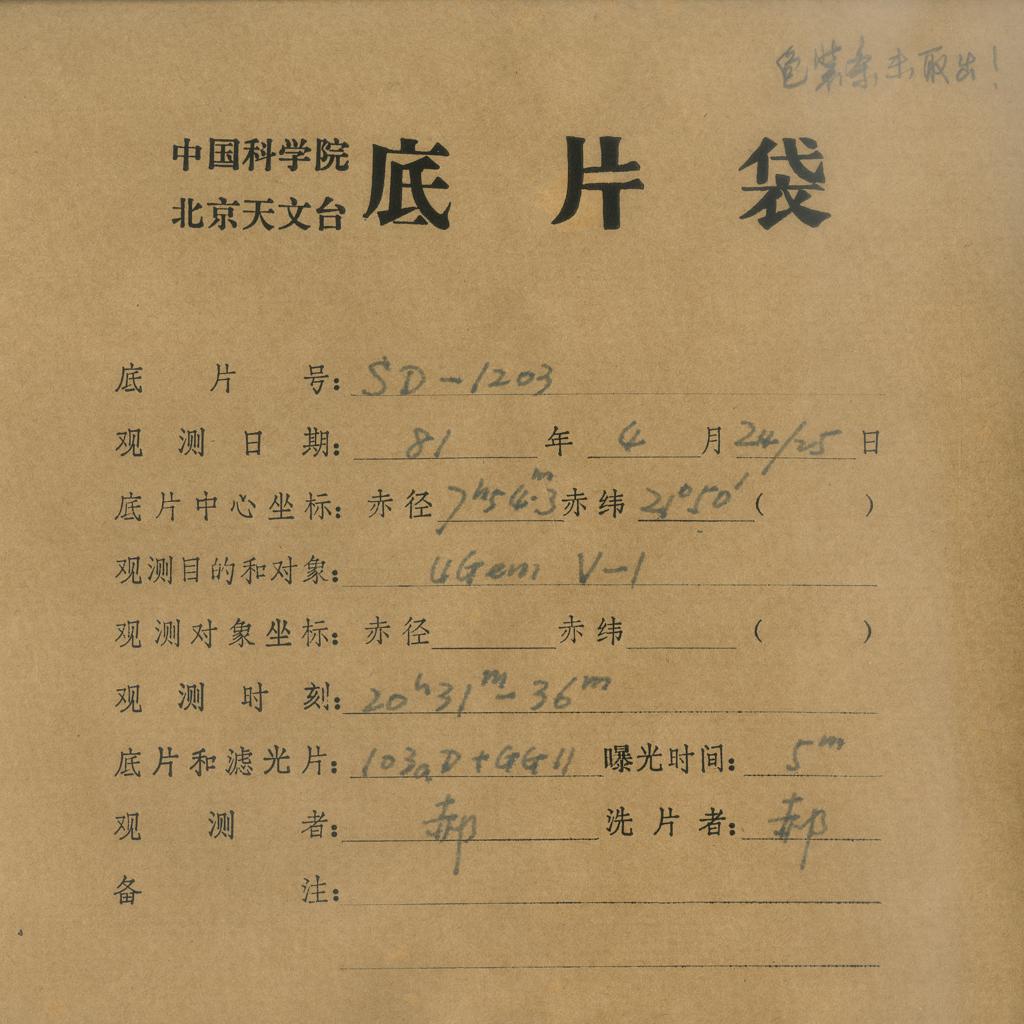 未取出!
中国科学院
北京天文台
底片袋
底片号: SD-1203
观测日期: 81年 4月 24/25日
底片中心坐标: 赤径 7h54.m3 赤纬 21°50′ ( )
观测目的和对象: UGem V-1
观测对象坐标: 赤径 赤纬 ( )
观测时刻: 20h31m-36m
底片和滤光片: 103aD+GG11 曝光时间: 5m
观测者: 郝 洗片者: 郝
备注: